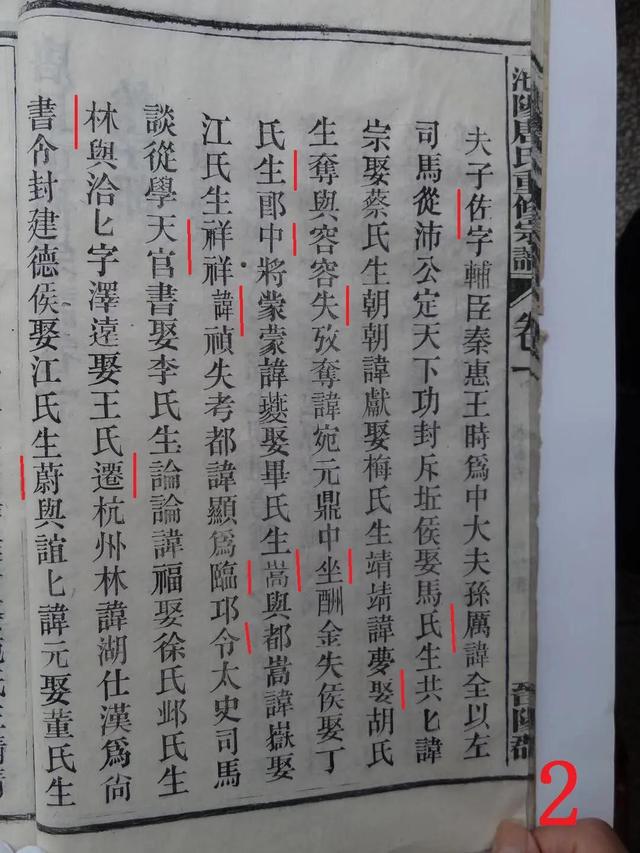 沔陽唐氏重修宗譜 卷一 晉陽郡
夫子佐字輔臣秦惠王時爲中大夫孫厲諱全以左
司馬從沛公定天下功封斥坵侯娶馬氏生共匕諱
宗娶蔡氏生朝朝諱獻娶梅氏生靖靖諱夢娶胡氏
生奪與容容失攷奪諱宛元鼎中坐酬金失侯娶丁
氏生郎中將蒙蒙諱䕫娶畢氏生嵩與都嵩諱嶽娶
江氏生祥祥諱禎失考都諱顯爲臨邛令太史司馬
談從學天官書娶李氏生論論諱福娶徐氏邺氏生
林與洽匕字澤遠娶王氏遷杭州林諱湖仕漢爲尙
書令封建德侯娶江氏生蔚與誼匕諱元娶董氏生
2